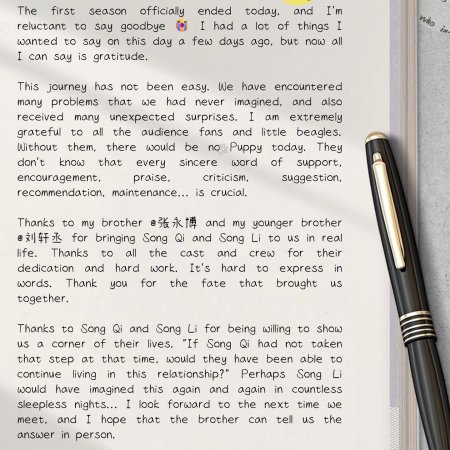 The first season officially ended today, and I'm
reluctant to say goodbye I had a lot of things I
wanted to say on this day a few days ago, but now all
I can say is gratitude.
This journey has not been easy. We have encountered
many problems that we had never imagined, and also
received many unexpected surprises. I am extremely
grateful to all the audience fans and little beagles.
Without them, there would be no Puppy today. They
don't know that every sincere word of support,
encouragement, praise, criticism, suggestion,
recommendation, maintenance... is crucial.
Thanks to my brother @張永博 and my younger brother
@刘轩丞 for bringing Song Qi and Song Li to us in real
life. Thanks to all the cast and crew for their
dedication and hard work. It's hard to express in
words. Thank you for the fate that brought us
together.
Thanks to Song Qi and Song Li for being willing to show
us a corner of their lives. "If Song Qi had not taken
that step at that time, would they have been able to
continue living in this relationship?" Perhaps Song Li
would have imagined this again and again in countless
sleepless nights... I look forward to the next time we
meet, and I hope that the brother can tell us the
answer in person.
who